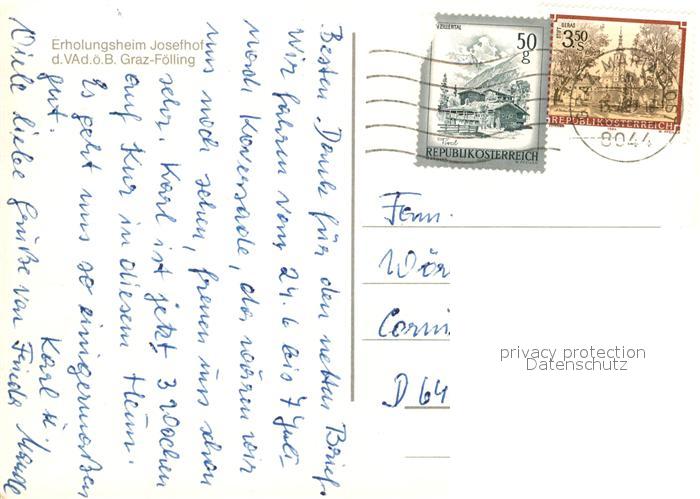 Erholungsheim Josefhof
d.VAd.ö.B. Graz-Fölling
Besten Dank für den netten Brief.
Wir fahren vom 24.6 bis 7 Juli
nach, da wären wir
uns noch sehen, freuen uns schon
sehr. Karl ist jetzt 3 Wochen
auf Kur in diesem Heim.
Es geht uns so einigermaßen
gut.
Karl u.
Viele liebe Grüße von Frieda
ZILLERTAL
50
g
REPUBLIK ÖSTERREICH
STIFT GERAS
3.50
S
REPUBLIK ÖSTERREICH
8044
Fam.
Wör
Corni
D 64
privacy protection
Datenschutz